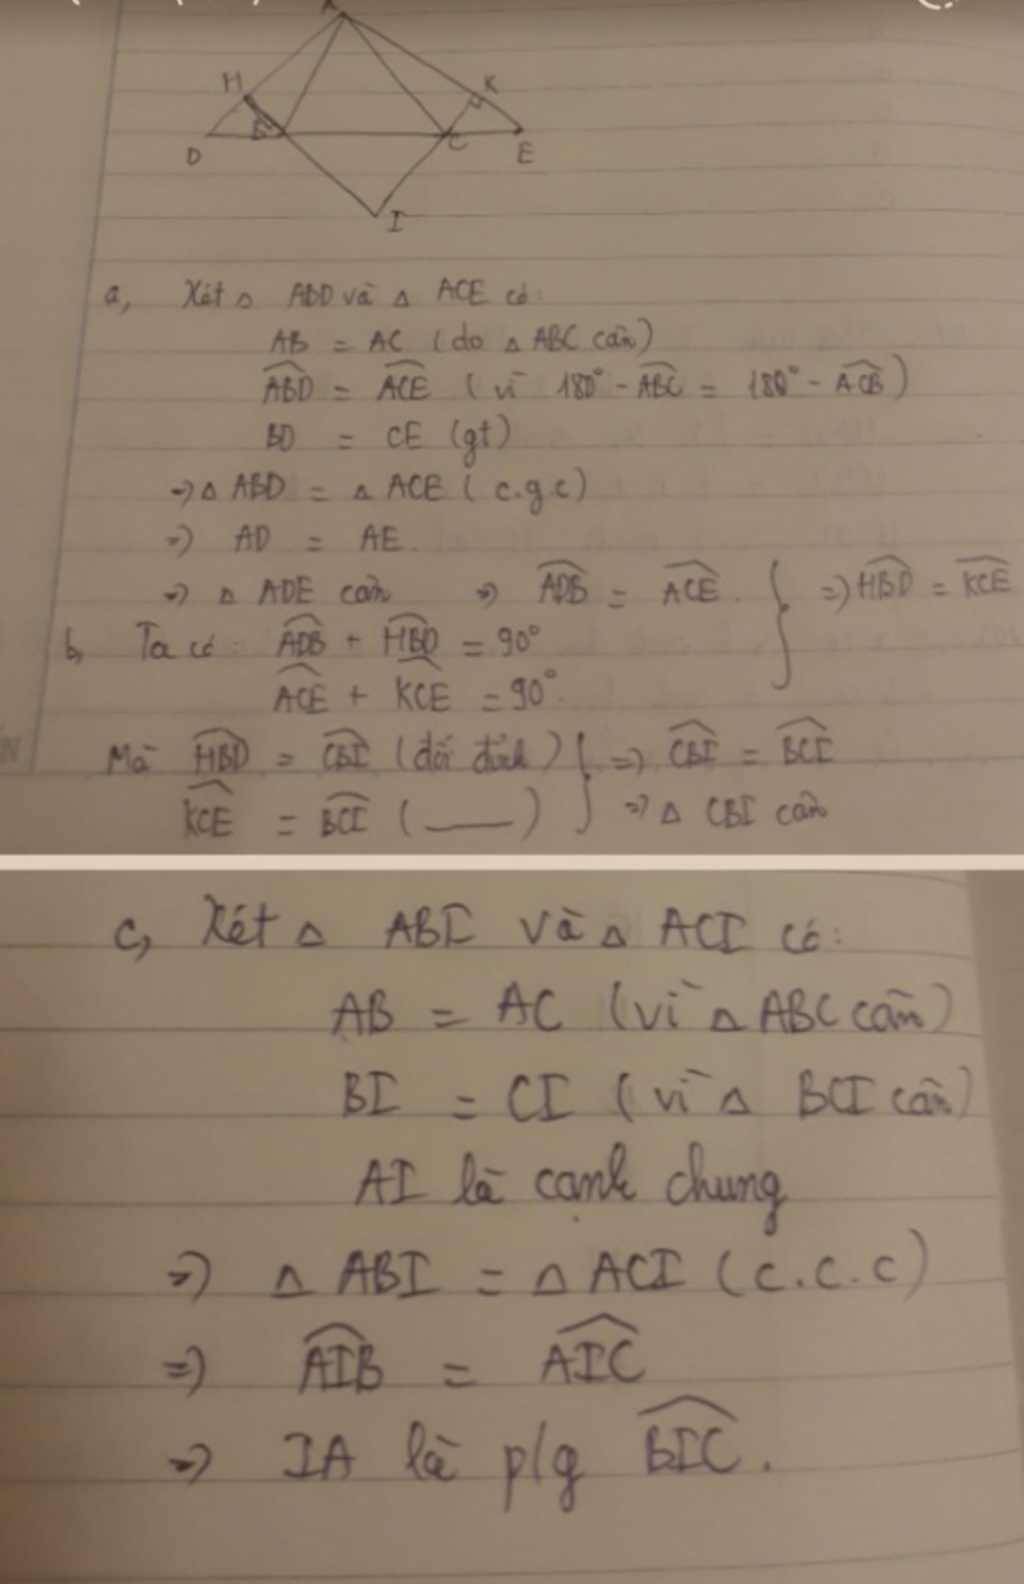 A
H
K
D
B
C
E
I
a, Xét △ ABD và △ ACE có:
AB = AC (do △ ABC cân)
\widehat{ABD} = \widehat{ACE} (vì 180° - \widehat{ABC} = 180° - \widehat{ACB})
BD = CE (gt)
=> △ ABD = △ ACE (c.g.c)
=> AD = AE.
=> △ ADE cân => \widehat{ADB} = \widehat{ACE}. } => \widehat{HBD} = \widehat{KCE}
b, Ta có: \widehat{ADB} + \widehat{HBD} = 90°
\widehat{ACE} + \widehat{KCE} = 90°.
Mà \widehat{HBD} = \widehat{CBI} (đối đỉnh) } => \widehat{CBI} = \widehat{BCI}
\widehat{KCE} = \widehat{BCI} (___) => △ CBI cân
c, Xét △ ABI và △ ACI có:
AB = AC (vì △ ABC cân)
BI = CI (vì △ BCI cân)
AI là canh chung
=> △ ABI = △ ACI (c.c.c)
=> \widehat{AIB} = \widehat{AIC}
=> IA là p/g \widehat{BIC}.